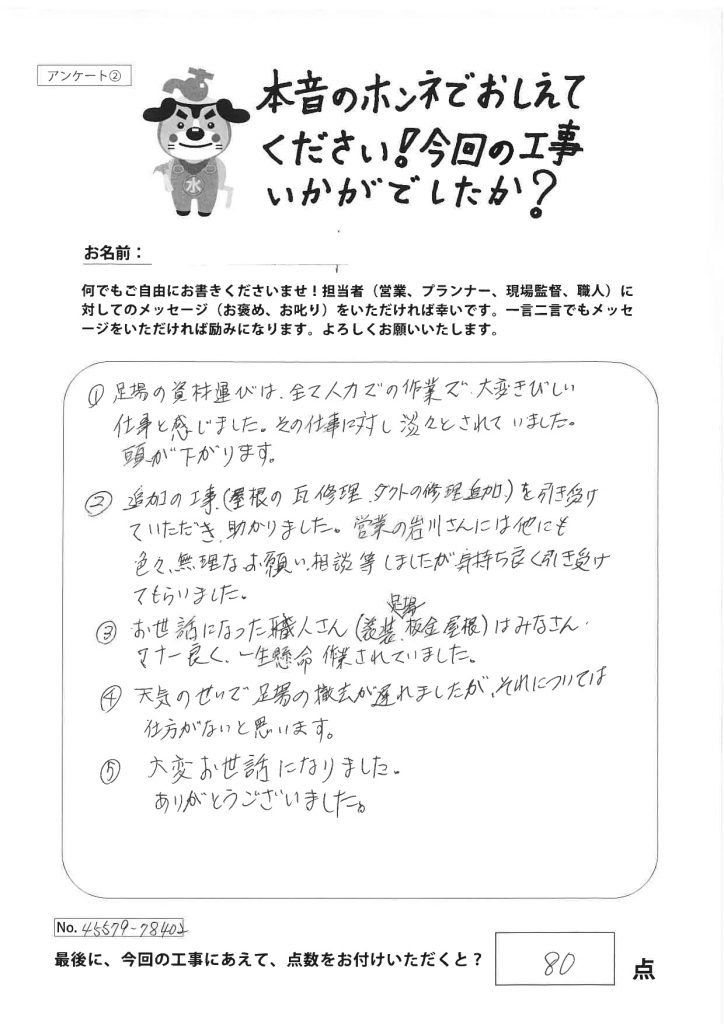 アンケート②
本音のホンネでおしえて
ください！今回の工事
いかがでしたか？
水
お名前：
何でもご自由にお書きくださいませ！担当者（営業、プランナー、現場監督、職人）に
対してのメッセージ（お褒め、お叱り）をいただければ幸いです。一言二言でもメッセ
ージをいただければ励みになります。よろしくお願いいたします。
① 足場の資材運びは、全て人力での作業で、大変きびしい
仕事と感じました。その仕事に対し淡々とされていました。
頭が下がります。
② 追加の工事、（屋根の瓦修理、ダクトの修理追加）を引き受け
ていただき、助かりました。営業の岩川さんには他にも
色々、無理なお願い、相談等しましたが気持ち良く引き受け
てもらいました。
足場
③ お世話になった職人さん（塗装、板金屋根）はみなさん、
マナー良く、一生懸命作業されていました。
④ 天気のせいで足場の撤去が遅れましたが、それについては
仕方がないと思います。
⑤ 大変お世話になりました。
ありがとうございました。
No. 45579-78402
最後に、今回の工事にあえて、点数をお付けいただくと？ 80 点